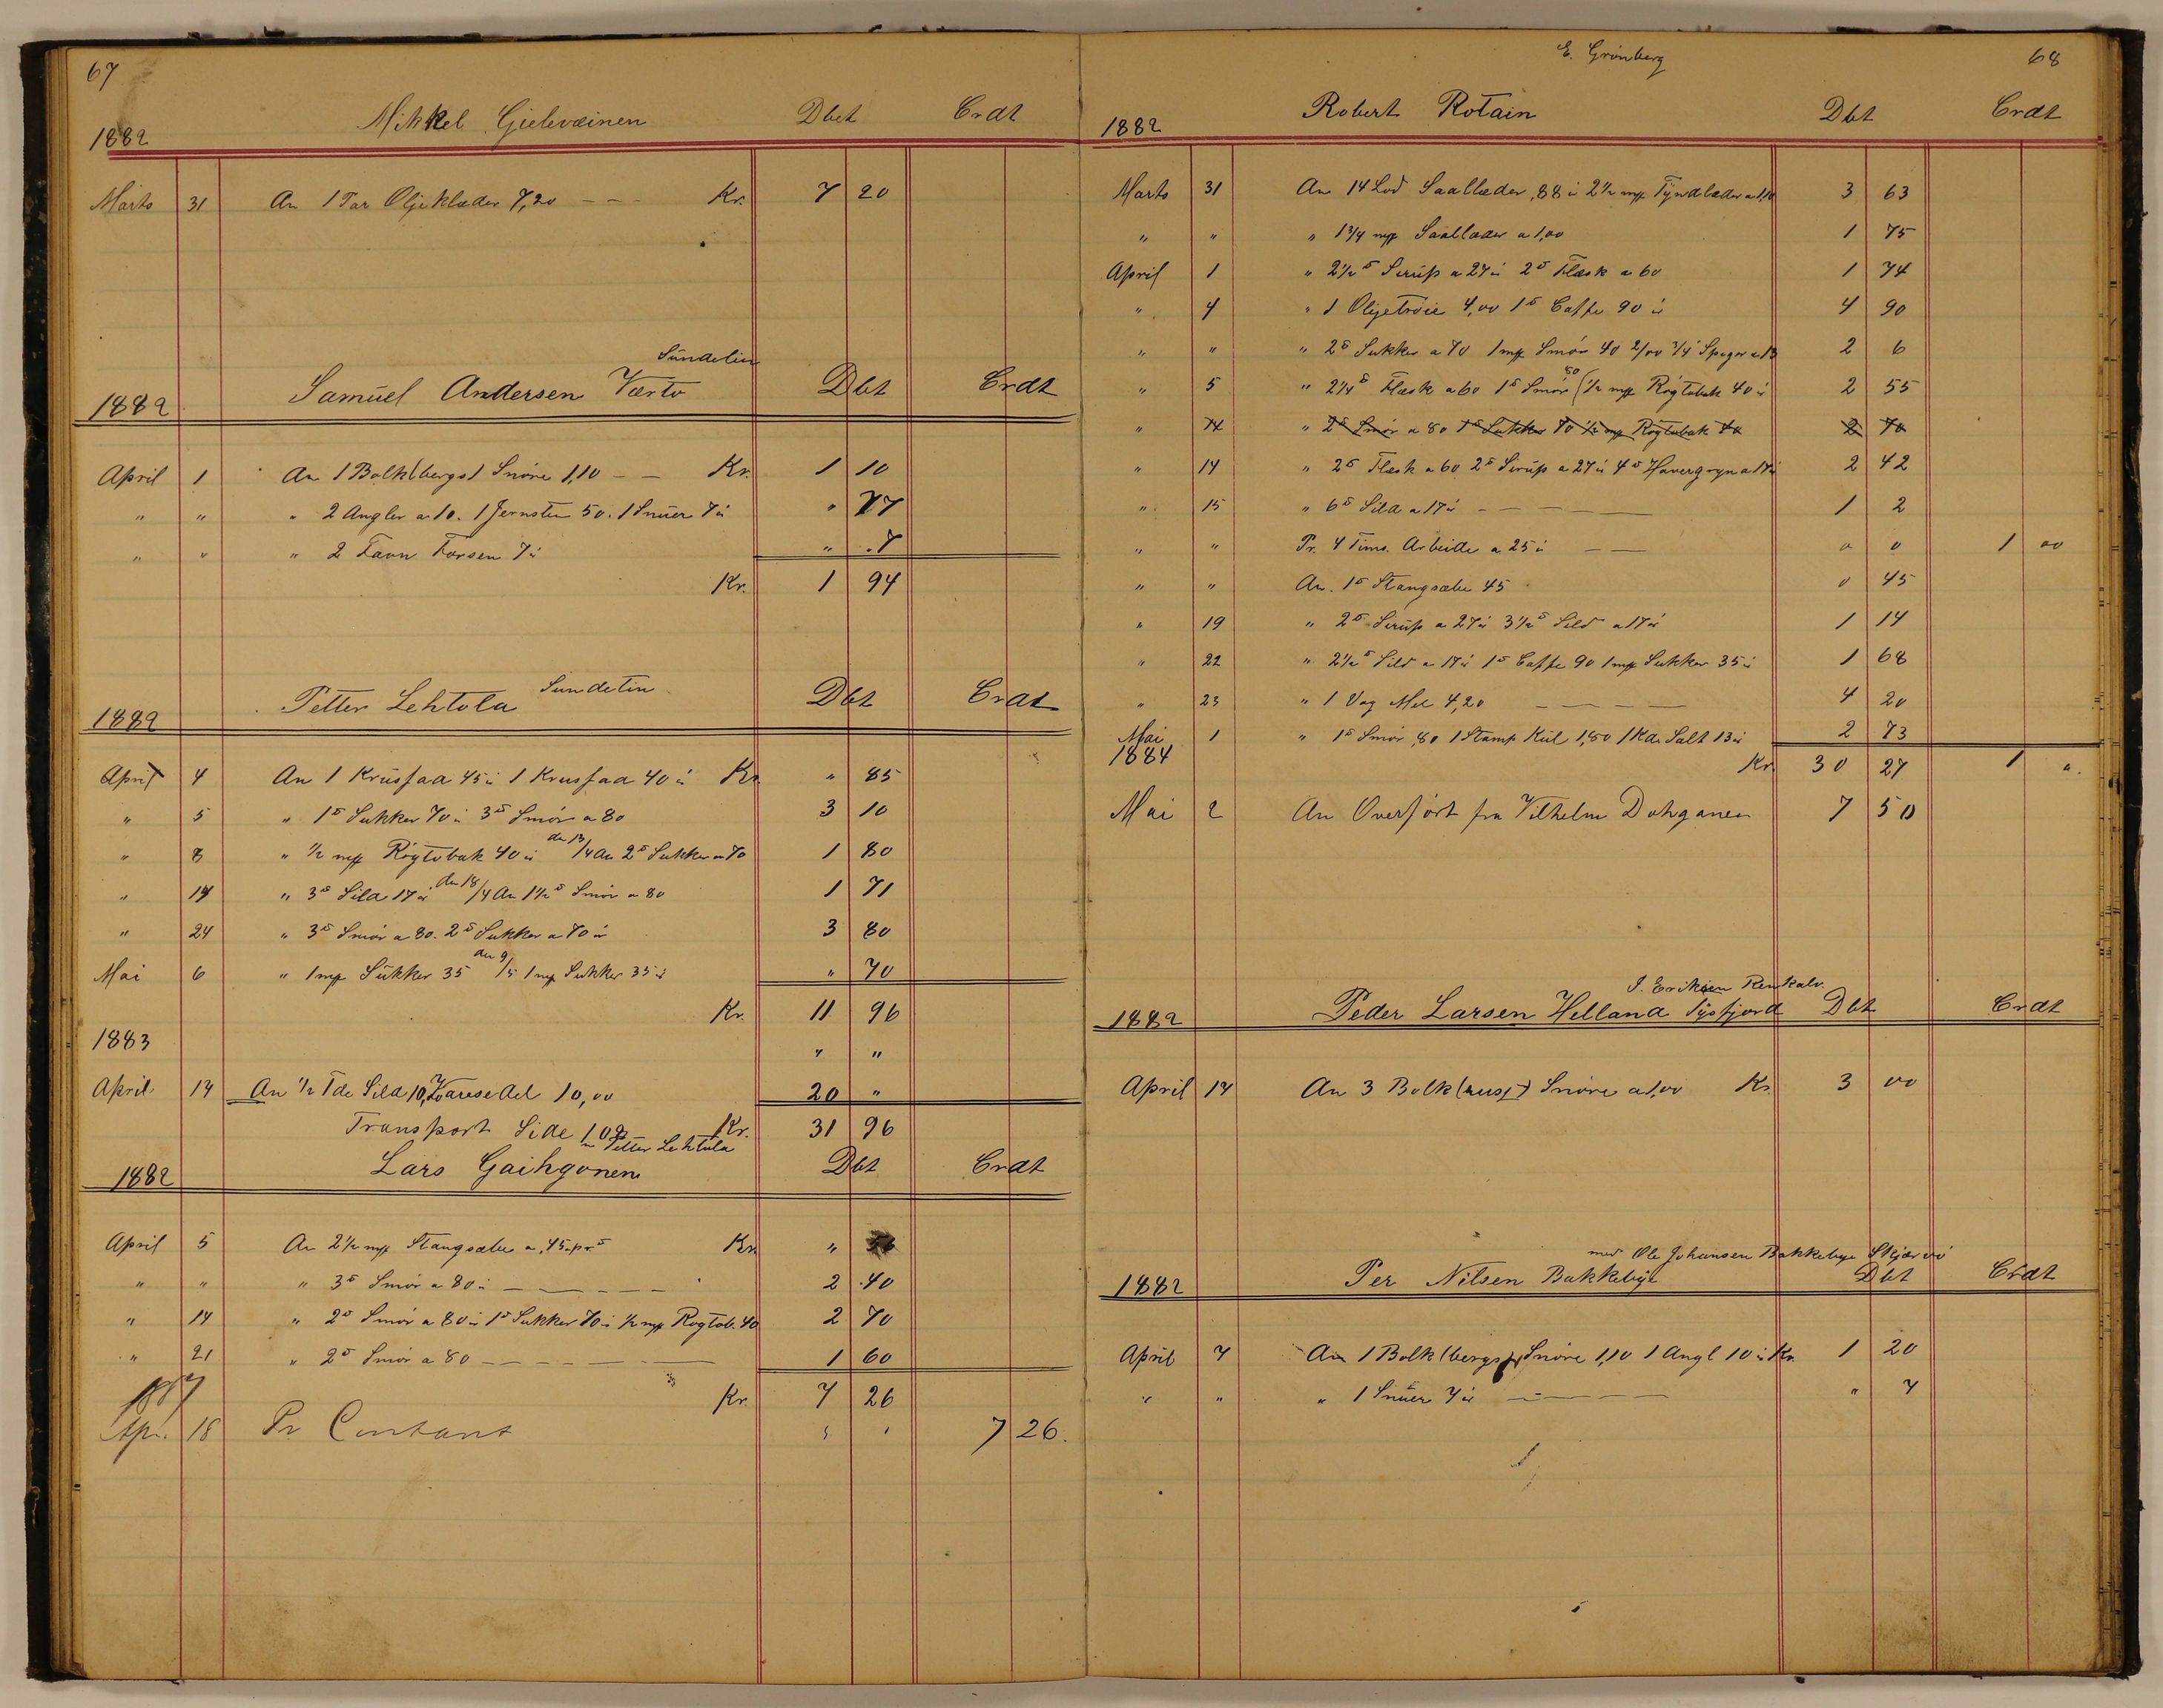 67
Mikkel Gielevæinen Dbet Crdt
1882
Marts 31 An 1 Par Oljeklæder 7,20 - - - Kr. 7 20
Sündelin
Samuel Andersen Værto Dbt Crdt
1882
April 1 An 1 Bolk (bergs) Snøre 1,10 - - Kr. 1 10
" " " 2 Angler a 10. 1 Jernsten 50. 1 Snüer 7 ö " 77
" " " 2 Favn Forsen 7 ö " 7
Kr. 1 94
Petter Lehtola Sundelin Dbt Crdt
1882
April 4 An 1 Krusfad 45 ö 1 Krusfad 40 ö Kr. " 85
" 5 " 1 ℔ Sukker 70 ö 3 ℔ Smør a 80 3 10
" 8 " 1/2 mp Røgtobak 40 ö den 13/4 An 2 ℔ Sukker a 70 1 80
" 14 " 3 ℔ Sild a 17 ö den 18/4 An 1 1/2 ℔ Smør a 80 1 71
" 24 " 3 ℔ Smør a 80. 2 ℔ Sukker a 70 ö 3 80
Mai 6 " 1 mp Sükker 35 den 9/5 1 mp Sukker 35 ö " 70
Kr. 11 96
1883 " "
April 14 An 1/2 Tde Sild 10, Del 10,00 20 "
Transport Side 102 Kr. 31 96
m Petter Lehtola
Lars Gaihgonen Dbt Crdt
1882
April 5 An 2 1/2 mp Stangsæbe a ,45 pr ℔ Kr. " 56
" " " 3 ℔ Smør a 80 ö - - - - - 2 40
" 14 " 2 ℔ Smør a 80 ö 1 ℔ Sukker 70 ö 1/2 mp Røgtob. 40 2 70
" 21 " 2 ℔ Smør a 80 - - - - - - 1 60
1887 Kr. 7 26
Apr. 18 Pr Contant " " 7 26.
E. Grönberg 68
Robert Rotain Dbt Crdt
1882
Marts 31 An 14 Lod Saallæder ,88 ö 2 1/2 mp Tÿndlæder a 1,10 3 63
" " " 1 3/4 mp Saallæder a 1,00 1 75
April 1 " 2 1/2 ℔ Sirüp a 27 ö 2 ℔ Flæsk a 60 1 74
" 4 " 1 Oljetröie 4,00 1 ℔ Caffe 90 ö 4 90
" " " 2 ℔ Sukker a 70 1 mp Smør 40 2/00 3/4" Spiger a 13 2 6
" 5 " 2 1/4 ℔ Flæsk a 60 1 ℔ Smør 80 (1/2 mp Røgtobak 40 ö 2 55
" 14 " 2 ℔ Smør a 80 1 ℔ Sukker 70 1/2 mp Røgtobak 40 2 70
" 14 " 2 ℔ Flæsk a 60 2 ℔ Sirüp a 27 ö 4 ℔ Havergryn a 17 ö 2 42
" 15 " 6 ℔ Sild a 17 ö - - - - - 1 2
" " Pr. 4 Tims. Arbeide a 25 ö - - 0 0 1 00
" " An. 1 ℔ Stangsæbe 45 0 45
" 19 " 2 ℔ Sirup a 27 ö 3 1/2 ℔ Sild a 17 ö 1 14
" 22 " 2 1/2 ℔ Sild a 17 ö 1 ℔ Caffe 90 1 mp Sukker 35 ö 1 68
" 23 " 1 Vog Mel 4,20 - - - - - 4 20
Mai 1 " 1 ℔ Smør ,80 1 Stamp Kül 1,80 1 Kde Salt 13 ö 2 73
1884 Kr. 30 27 1 "
Mai 2 An Overført fra Vilhelm Dahganen 7 50
J. Eriksen Renkalv.
Peder Larsen Helland Sysfjord Dbt Crdt
1882
April 14 An 3 Bolk (rusf) Snøre a 1,00 Kr. 3 00
med Ole Johansen Bakkebye Skjærvö
Per Nilsen Bakkebye Dbt Crdt
1882
April 7 An 1 Bolk (bergs) Snøre 1,10 1 Angl 10 ö Kr. 1 20
" " " 1 Snüer 7 ö - - - - - " 7